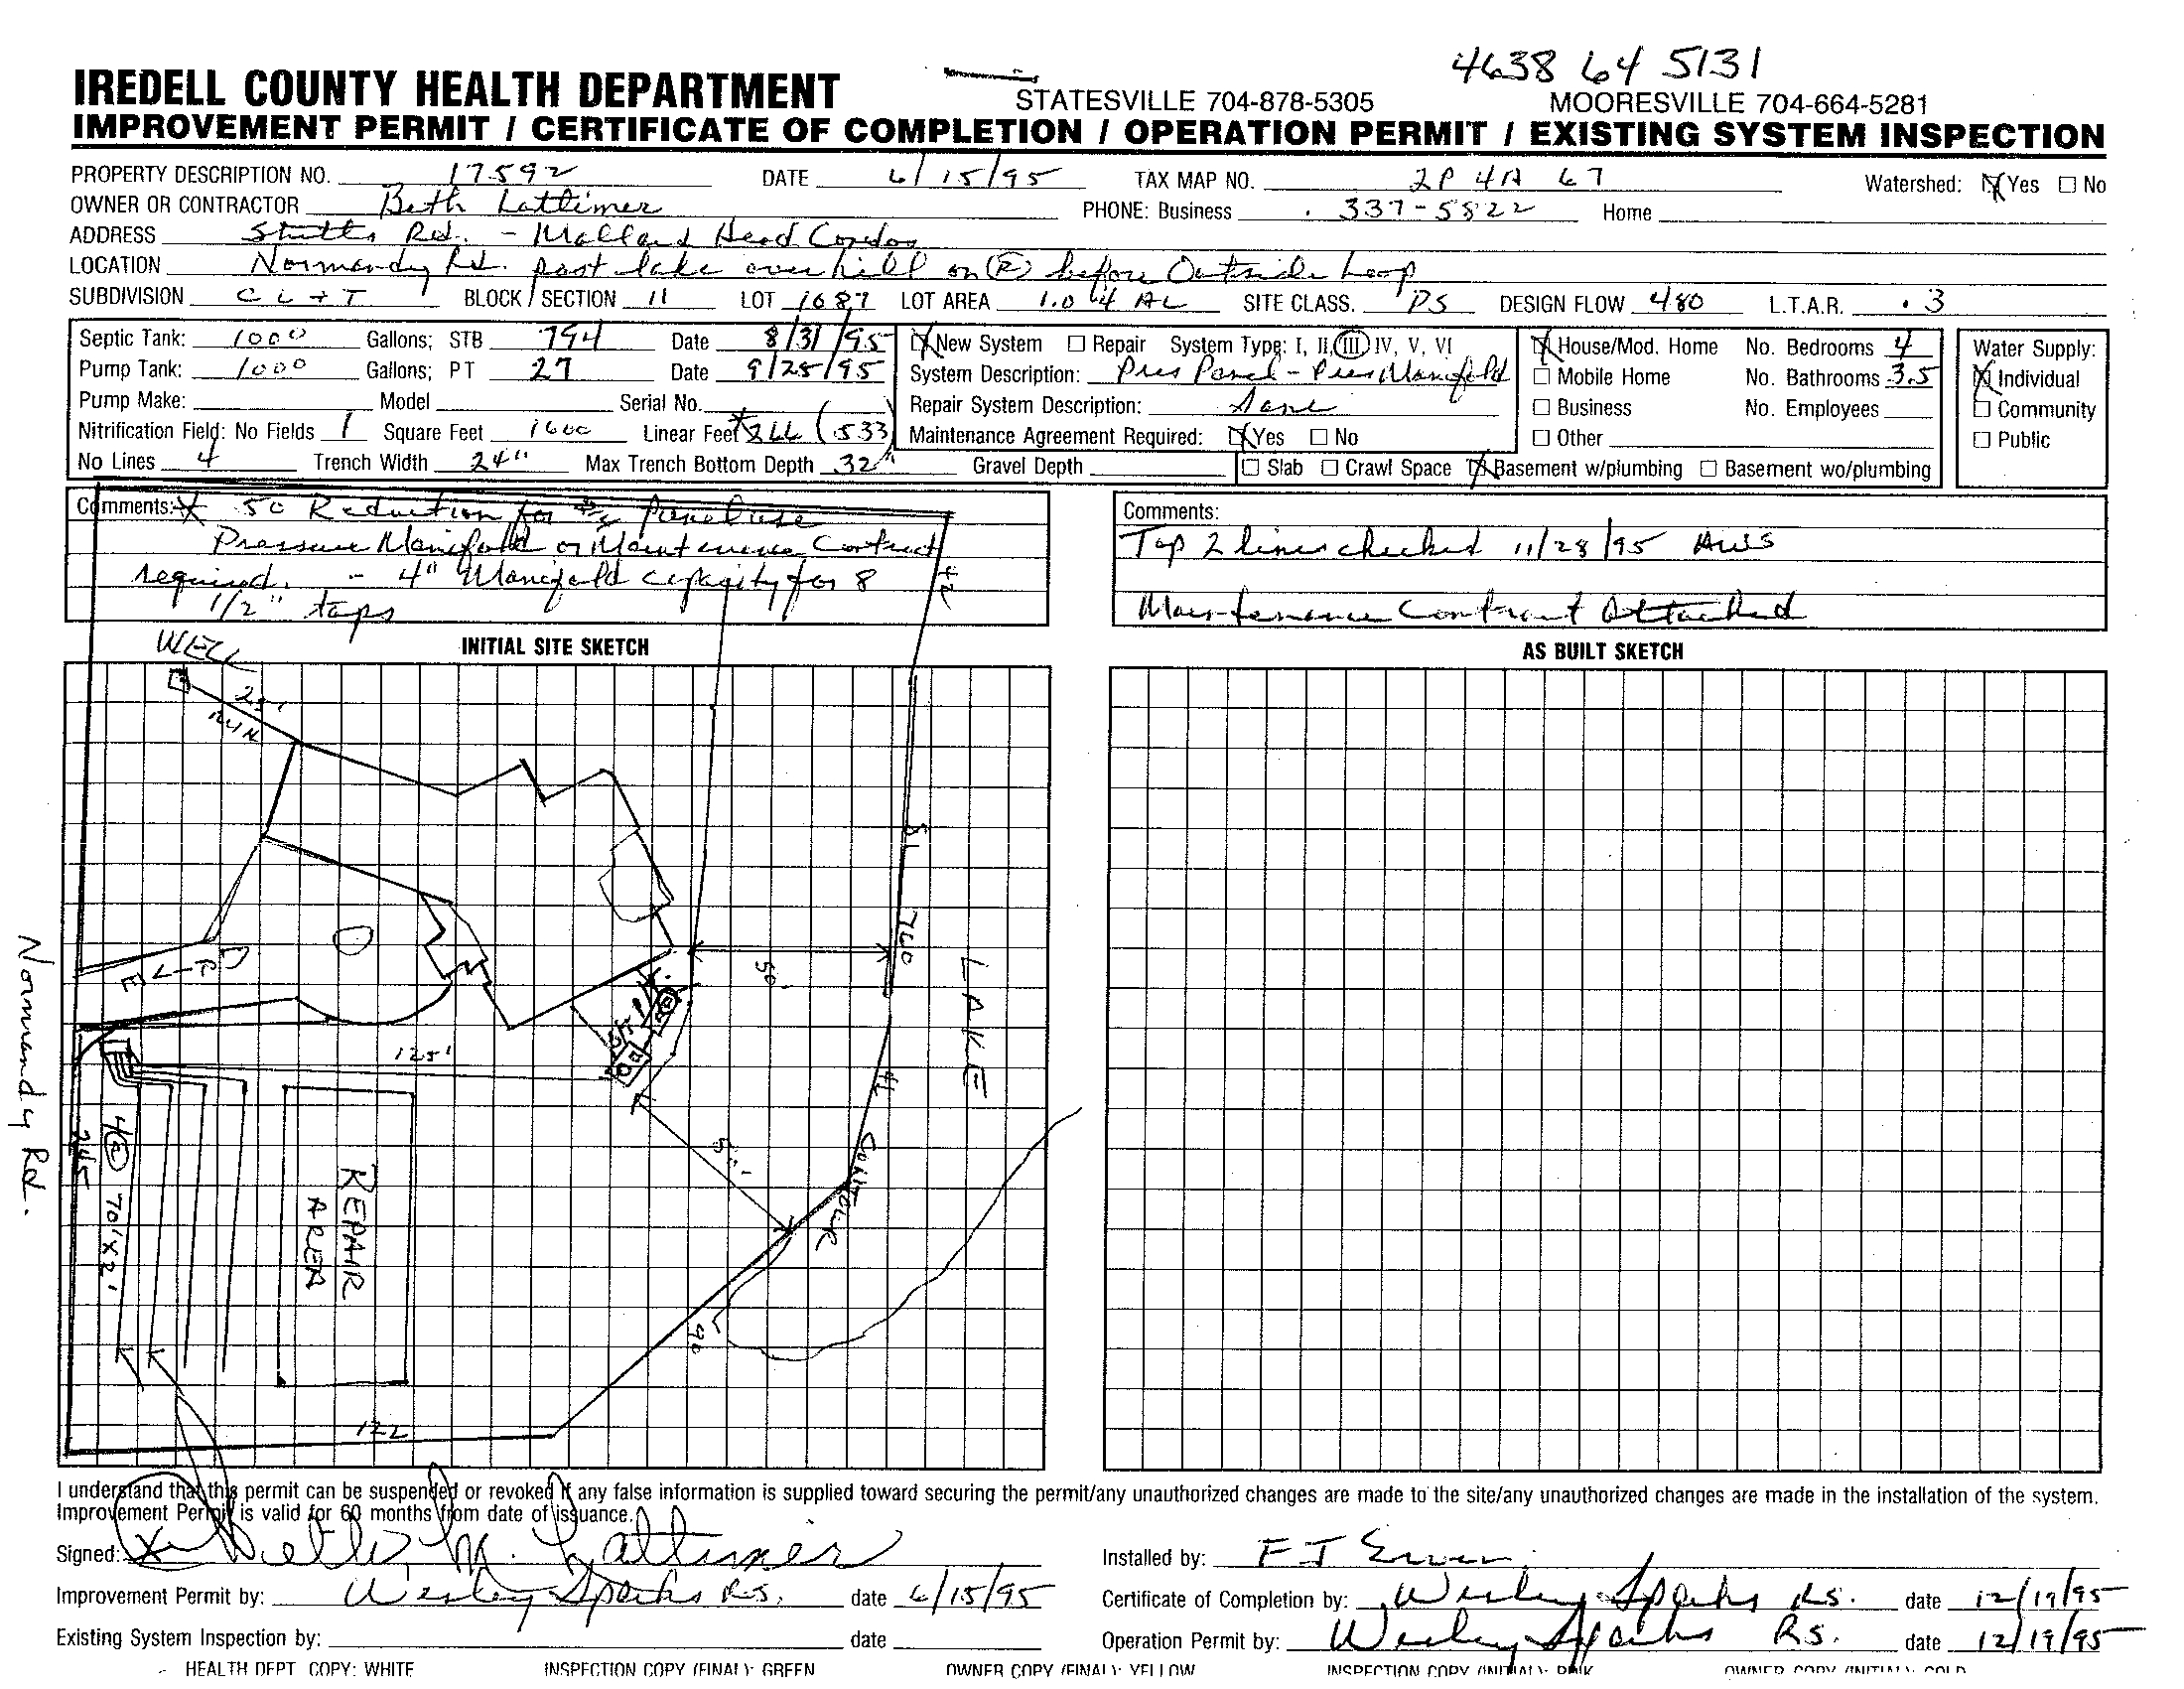 4638 64 5131
IREDELL COUNTY HEALTH DEPARTMENT STATESVILLE 704-878-5305 MOORESVILLE 704-664-5281
IMPROVEMENT PERMIT / CERTIFICATE OF COMPLETION / OPERATION PERMIT / EXISTING SYSTEM INSPECTION
PROPERTY DESCRIPTION NO. 17592 DATE 6/15/95 TAX MAP NO. 2P 4A 67 Watershed: Yes No
OWNER OR CONTRACTOR Beth Lattimer PHONE: Business 337-5822 Home
ADDRESS Stutts Rd. - Mallard Head Condos
LOCATION Normandy Rd. past lake over hill on (R) before Outside Loop
SUBDIVISION CL+T BLOCK / SECTION 11 LOT 1687 LOT AREA 1.04 AC SITE CLASS. PS DESIGN FLOW 480 L.T.A.R. .3
Septic Tank: 1000 Gallons; STB 794 Date 8/31/95 New System Repair System Type: I, II, III, IV, V, VI House/Mod. Home No. Bedrooms 4 Water Supply:
Pump Tank: 1000 Gallons; PT 27 Date 9/25/95 System Description: Pres Panel - Pres Manifold Mobile Home No. Bathrooms 3.5 Individual
Pump Make: Model Serial No. Repair System Description: Same Business No. Employees Community
Nitrification Field: No Fields 1 Square Feet 1600 Linear Feet *266 (533) Maintenance Agreement Required: Yes No Other Public
No Lines 4 Trench Width 24" Max Trench Bottom Depth 32" Gravel Depth Slab Crawl Space Basement w/plumbing Basement wo/plumbing
Comments: * 50 Reduction for
Pressure Manifold Maintenance Contract
required. - 4" Manifold capacity for 8
1/2" taps
Comments:
Top 2 lines checked 11/28/95 AWS
Maintenance Contract Attached
WELL
INITIAL SITE SKETCH
AS BUILT SKETCH
25'
MIN
42
81
760
CONTOUR
LAKE
50'
125'
41
50'
Normandy Rd.
245
4 @ 70' x 2'
REPAIR
AREA
90
122
I understand that this permit can be suspended or revoked if any false information is supplied toward securing the permit/any unauthorized changes are made to the site/any unauthorized changes are made in the installation of the system.
Improvement Permit is valid for 60 months from date of issuance.
Signed: x Beth M. Lattimer Installed by: F J
Improvement Permit by: Wesley Sparks R.S. date 6/15/95 Certificate of Completion by: Wesley Sparks R.S. date 12/19/95
Existing System Inspection by: date Operation Permit by: Wesley Sparks R.S. date 12/19/95
HEALTH DEPT. COPY: WHITE INSPECTION COPY (FINAL): GREEN OWNER COPY (FINAL): YELLOW INSPECTION COPY (INITIAL): PINK OWNER COPY (INITIAL): GOLD